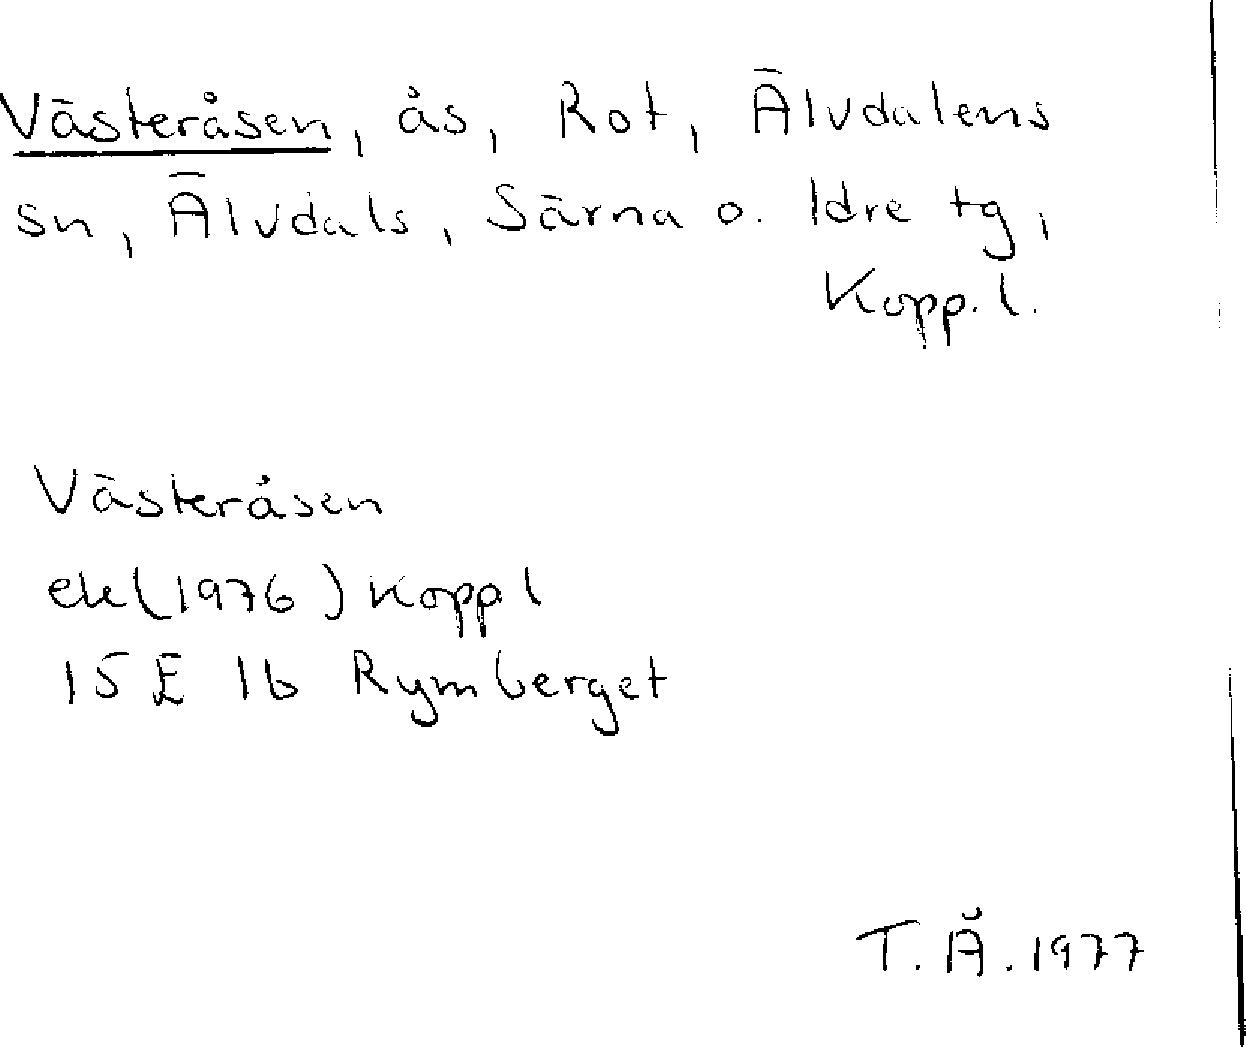 Västeråsen, ås, Rot, Älvdalens
sn, Älvdals, Särna o. Idre tg,
Kopp. l.
Västeråsen
ek (1976) Kopp l
15 E 1b Rymberget
T. Å. 1977